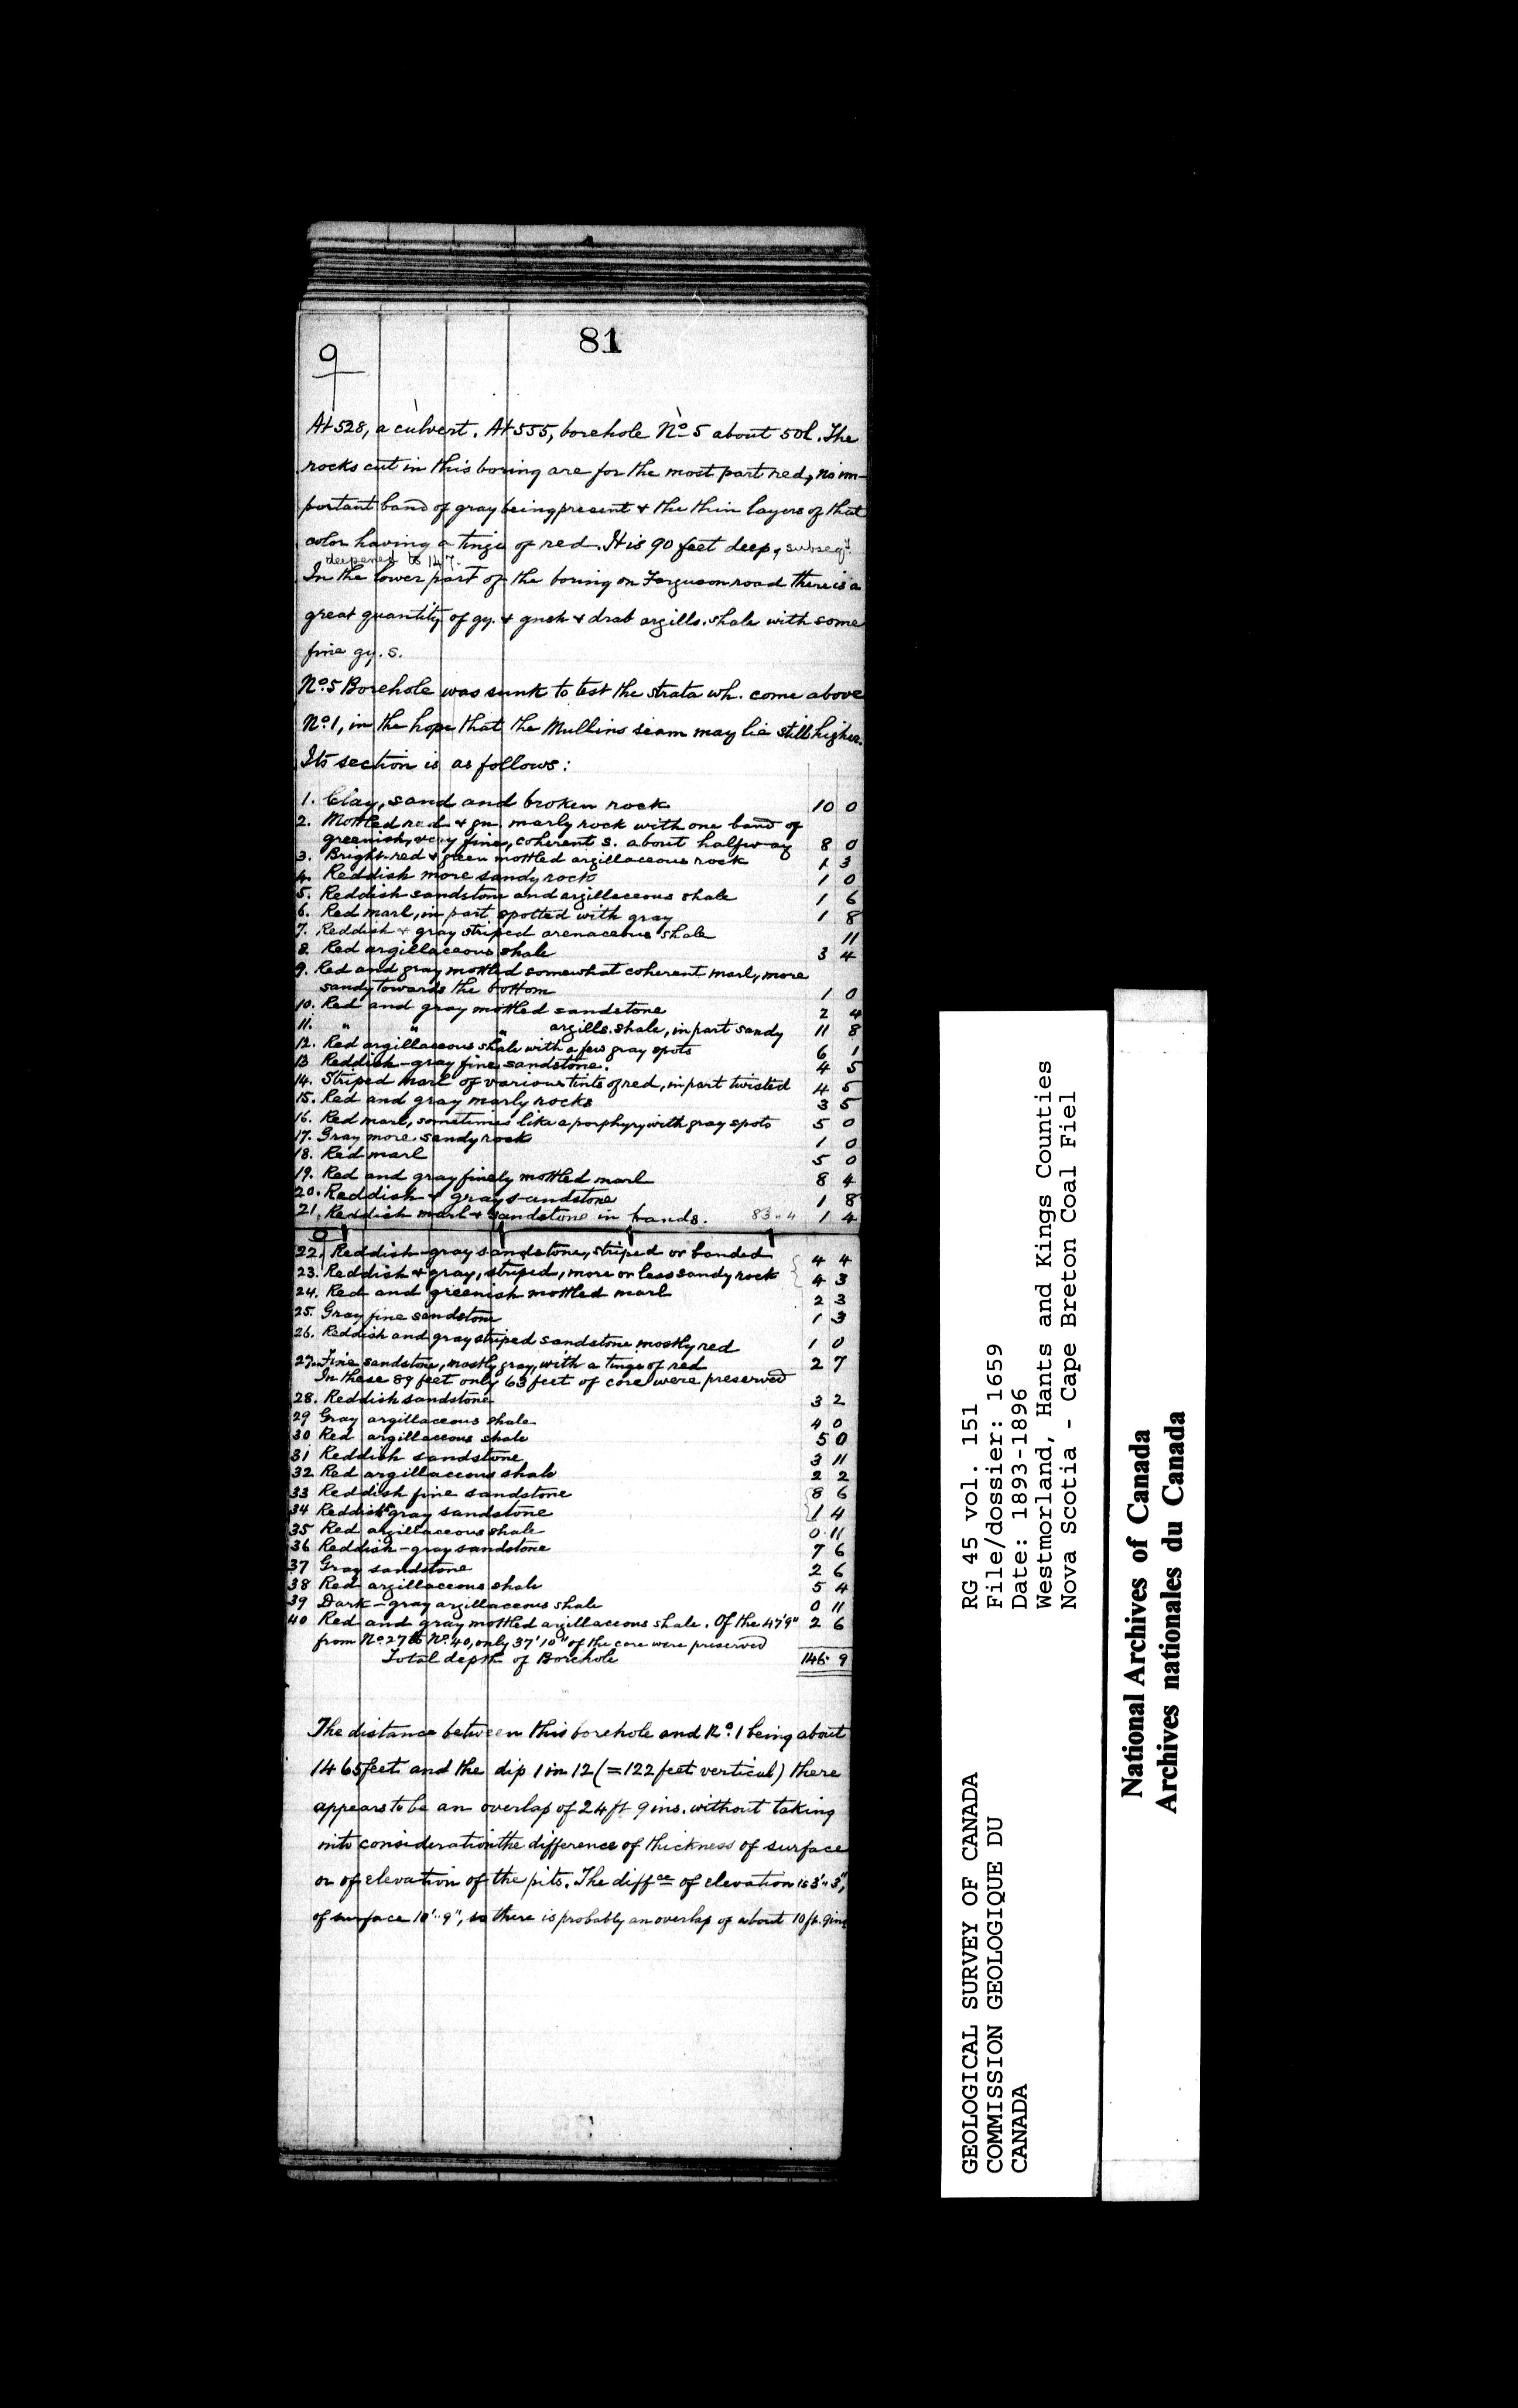 81
9
At 528, a culvert. At 555, borehole No. 5 about 50l. The
rocks cut in this boring are for the most part red, no im-
portant band of gray being present & the thin layers of that
color having a tinge of red. It is 90 feet deep, subseqt.
deepened to 147.
In the lower part of the boring on Ferguson road there is a
great quantity of gy. & gnsh & drab argills. shale with some
fine gy. s.
No. 5 Borehole was sunk to test the strata wh. come above
No. 1, in the hope that the Mullins seam may lie still higher.
Its section is as follows:
1. Clay, sand and broken rock 10 0
2. Mottled red & gn. marly rock with one band of
greenish, very fine, coherent s. about halfway 8 0
3. Bright-red & green mottled argillaceous rock 1 3
4. Reddish more sandy rock 1 0
5. Reddish sandstone and argillaceous shale 1 6
6. Red marl, in part spotted with gray 1 8
7. Reddish & gray striped arenaceous shale 11
8. Red argillaceous shale 3 4
9. Red and gray mottled somewhat coherent marl, more
sandy towards the bottom 1 0
10. Red and gray mottled sandstone 2 4
11. " " " argills. shale, in part sandy 11 8
12. Red argillaceous shale with a few gray spots 6 1
13 Reddish-gray fine sandstone. 4 5
14. Striped marl of various tints of red, in part twisted 4 5
15. Red and gray marly rocks 3 5
16. Red marl, sometimes like a porphyry with gray spots 5 0
17. Gray more sandy rock 1 0
18. Red marl 5 0
19. Red and gray finely mottled marl 8 4
20. Reddish & gray sandstone 1 8
21. Reddish marl & sandstone in bands. 83.4 1 4
22. Reddish-gray sandstone, striped or banded 4 4
23. Reddish & gray, striped, more or less sandy rock 4 3
24. Red and greenish mottled marl 2 3
25. Gray fine sandstone 1 3
26. Reddish and gray striped sandstone mostly red 1 0
27. Fine sandstone, mostly gray, with a tinge of red 2 7
In these 89 feet only 63 feet of core were preserved
28. Reddish sandstone 3 2
29 Gray argillaceous shale 4 0
30 Red argillaceous shale 5 0
31 Reddish sandstone 3 11
32 Red argillaceous shale 2 2
33 Reddish fine sandstone 8 6
34 Reddish & gray sandstone 1 4
35 Red argillaceous shale 0 11
36 Reddish-gray sandstone 7 6
37 Gray sandstone 2 6
38 Red argillaceous shale 5 4
39 Dark-gray argillaceous shale 0 11
40 Red and gray mottled argillaceous shale. Of the 47'9" 2 6
from No. 27 to No. 40, only 37'10" of the core were preserved
Total depth of Borehole 146 9
The distance between this borehole and No. 1 being about
1465 feet and the dip 1 in 12 (=122 feet vertical) there
appears to be an overlap of 24 ft 9 ins. without taking
into consideration the difference of thickness of surface
or of elevation of the pits. The diffce of elevation is 3'..3",
of surface 10'..9", so there is probably an overlap of about 10 ft. 9 ins
GEOLOGICAL SURVEY OF CANADA
COMMISSION GEOLOGIQUE DU
CANADA
RG 45 vol. 151
File/dossier: 1659
Date: 1893-1896
Westmorland, Hants and Kings Counties
Nova Scotia - Cape Breton Coal Fiel
National Archives of Canada
Archives nationales du Canada